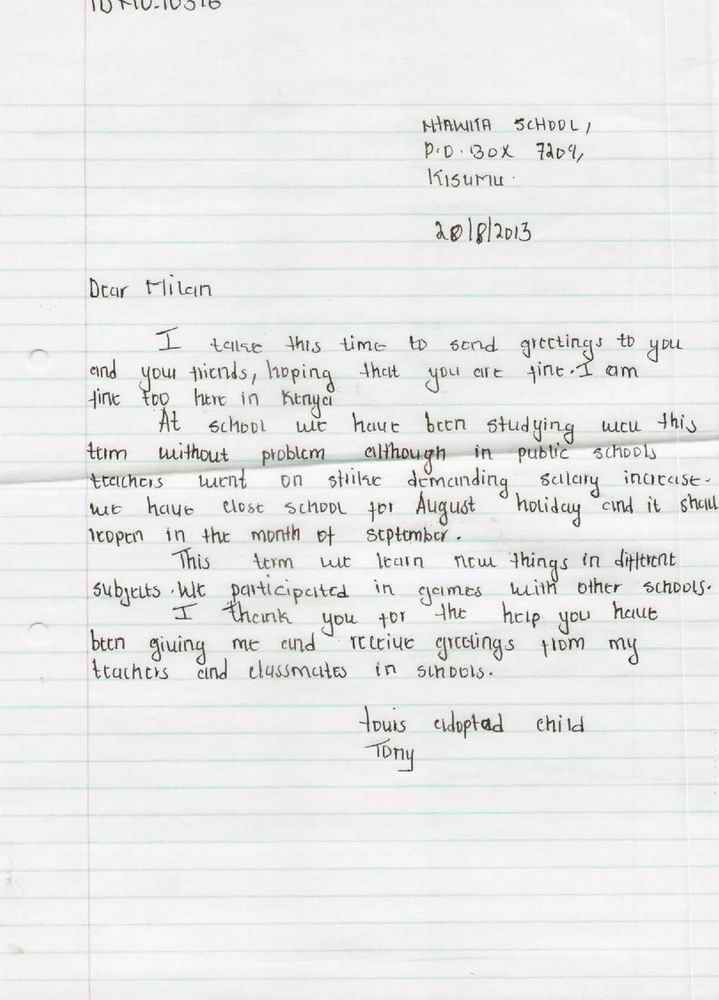 SCHOOL,
P.O. BOX 7209,
KISUMU.
20/8/2013
Dear Milan
I take this time to send greetings to you
and your friends, hoping that you are fine. I am
fine too here in Kenya
At school we have been studying well this
term without problem although in public schools
teachers went on strike demanding salary increase.
we have close school for August holiday and it shall
reopen in the month of september.
This term we learn new things in different
subjects. We participated in games with other schools.
I thank you for the help you have
been giving me and receive greetings from my
teachers and classmates in schools.
adopted child
Tony